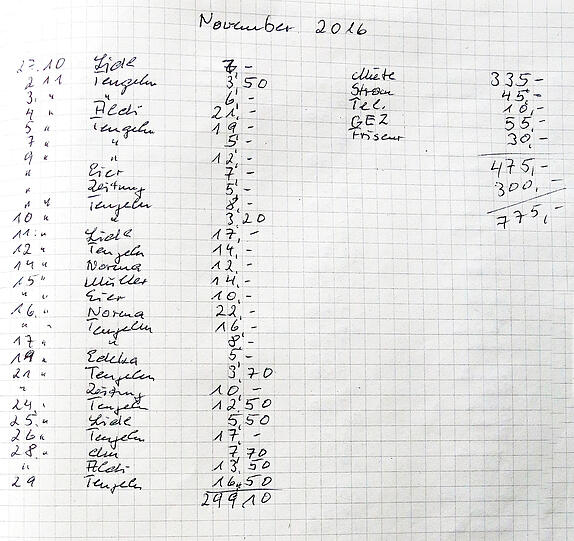 November 2016
27.10 Lidl 7,-
2 11 Tengeln 3,50
3. " " 6,-
4 " Aldi 21,-
5 " Tengeln 19,-
7 " " 5,-
9 " " 12,-
" Eier 7,-
" Zeitung 5,-
" " Tengeln 8,-
10 " " 3,20
11. " Lidl 17,-
12 " Tengeln 14,-
14 " Norma 12,-
15 " Müller 14,-
" " Eier 10,-
16. " Norma 22,-
" " Tengeln 16,-
17 " " 8,-
19 " Edeka 5,-
21 " Tengeln 3,70
" Zeitung 10,-
24. " Tengeln 12,50
25. " Lidl 5,50
26 " Tengeln 17,-
28. " dm 7,70
" Aldi 13,50
29 Tengeln 16,50
299,10
Miete 335,-
Strom 45,-
Tel. 10,-
GEZ 55,-
Friseur 30,-
475,-
300,-
775,-